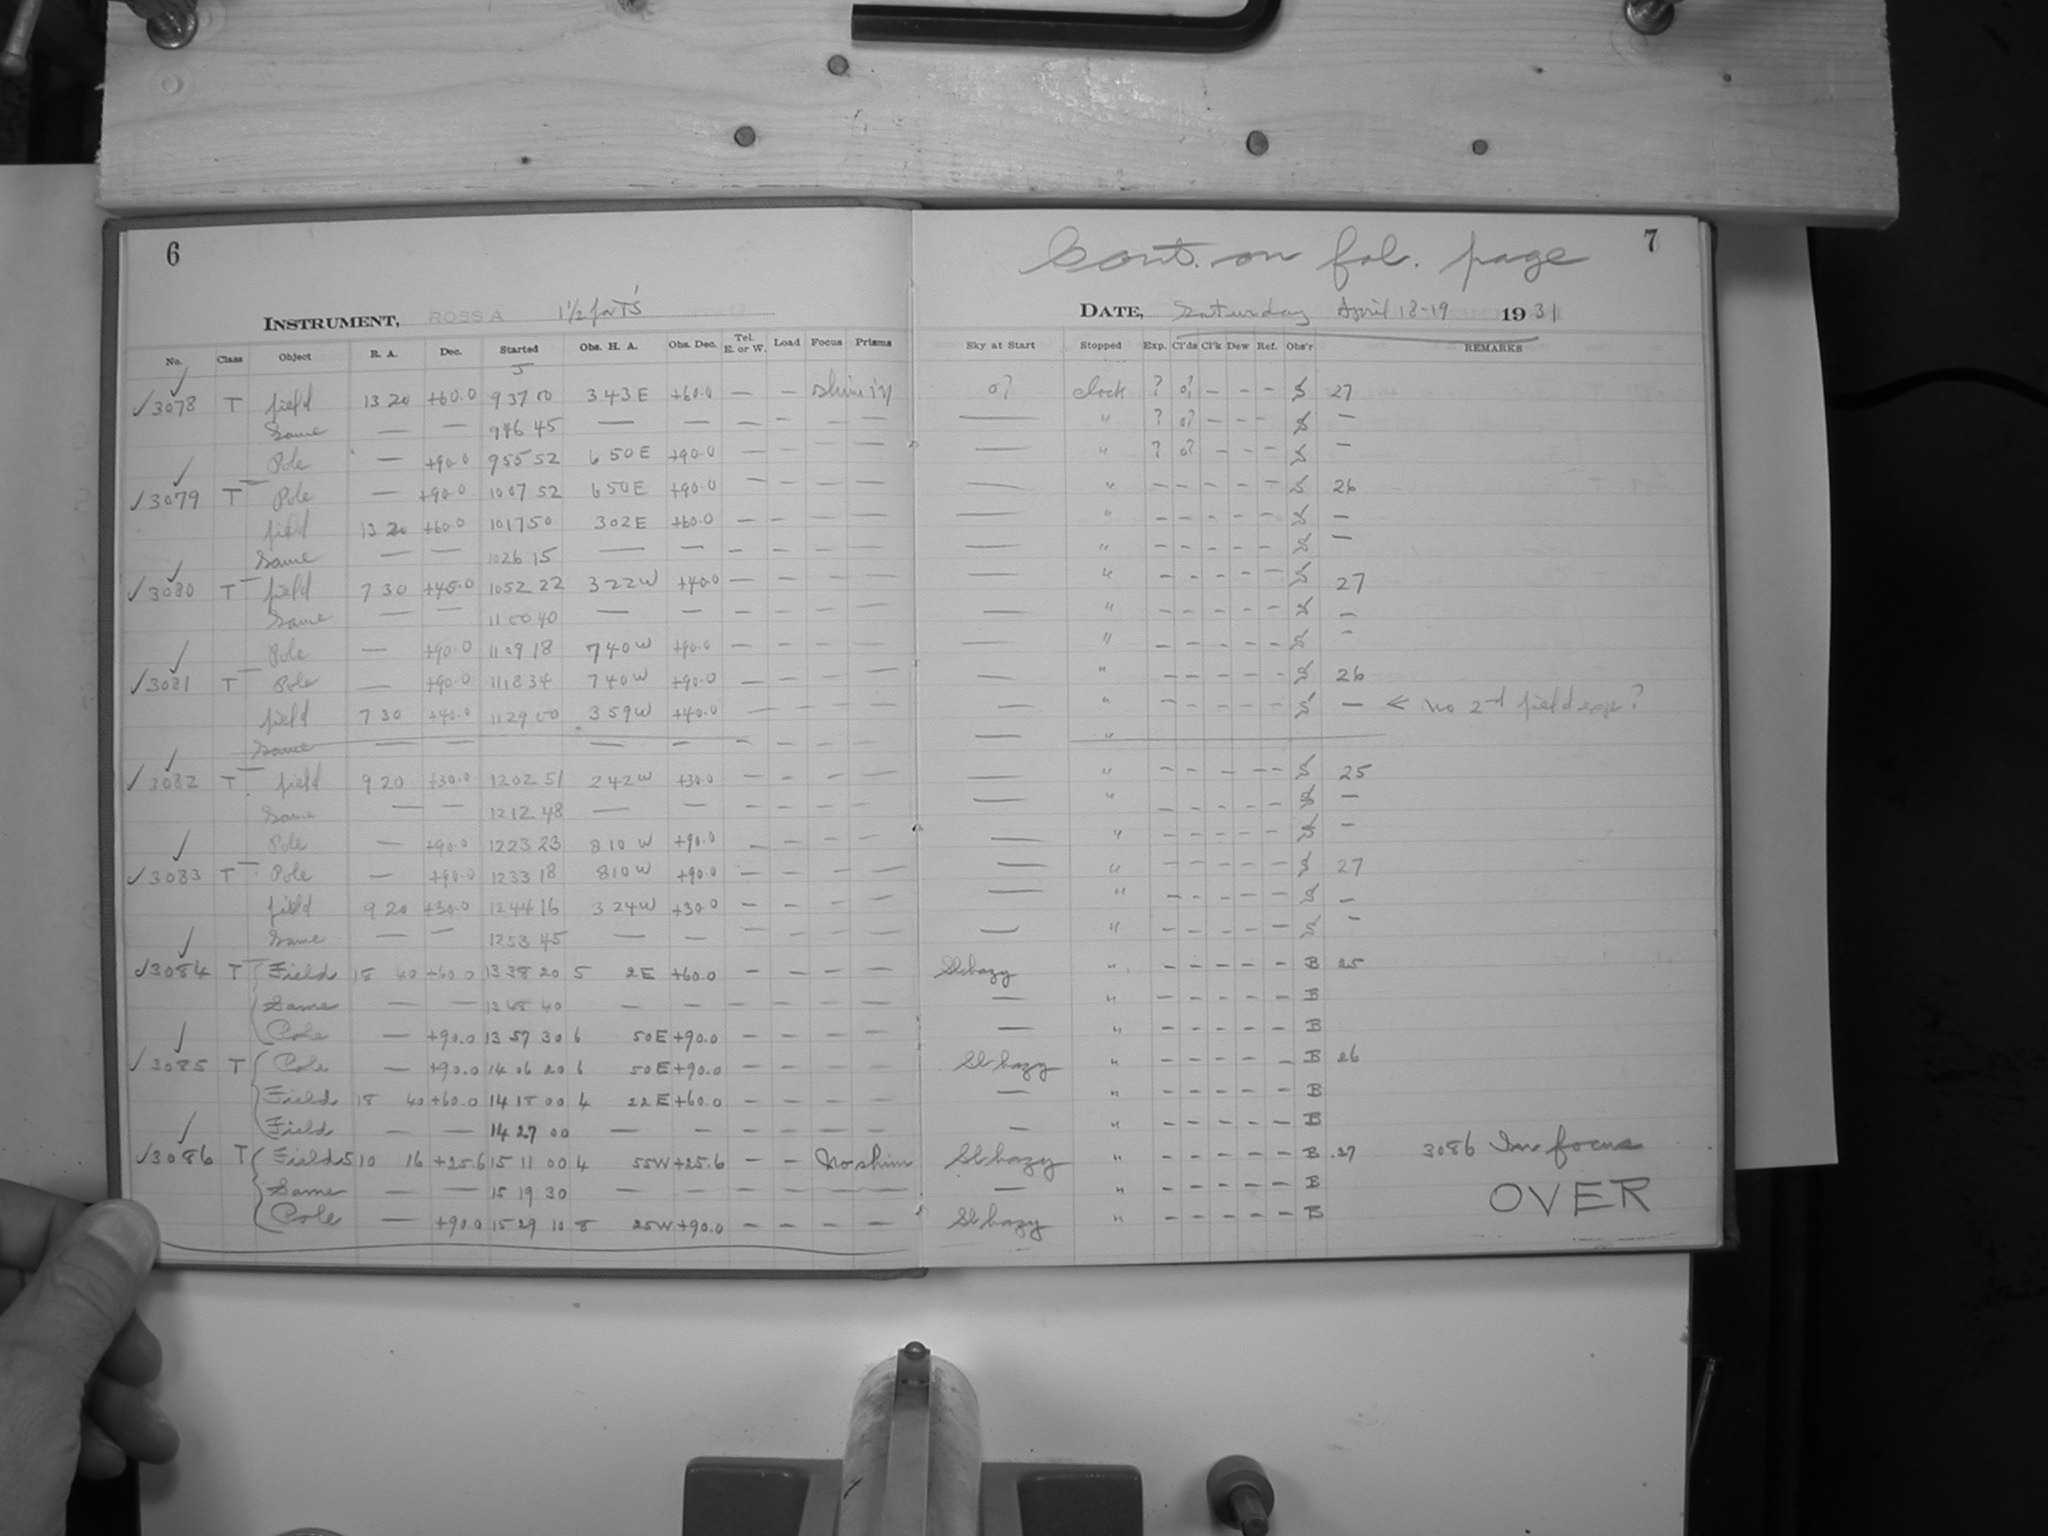 6
INSTRUMENT, ROSS A 1½ for T's
No. Class Object R. A. Dec. Started Obs. H. A. Obs. Dec. Tel. E. or W. Load Focus Prisms
J
✓3078 T field 13 20 +60.0 9 37 10 3 43 E +60.0 — — shim in
Same — — 9 46 45 — — — — — —
Pole — +90.0 9 55 52 6 50 E +90.0 — — — —
✓3079 T Pole — +90.0 10 07 52 6 50 E +90.0 — — — —
field 13 20 +60.0 10 17 50 3 02 E +60.0 — — — —
Same — — 10 26 15 — — — — — —
✓3080 T field 7 30 +40.0 10 52 22 3 22 W +40.0 — — — —
Same — — 11 00 40 — — — — — —
Pole — +90.0 11 09 18 7 40 W +90.0 — — — —
✓3081 T Pole — +90.0 11 18 34 7 40 W +90.0 — — — —
field 7 30 +40.0 11 29 00 3 59 W +40.0 — — — —
Same — — — — — — — —
✓3082 T field 9 20 +30.0 12 02 51 2 42 W +30.0 — — — —
Same — — 12 12 48 — — — — — —
Pole — +90.0 12 23 23 8 10 W +90.0 — — — —
✓3083 T Pole — +90.0 12 33 18 8 10 W +90.0 — — — —
field 9 20 +30.0 12 44 16 3 24 W +30.0 — — — —
Same — — 12 53 45 — — — — — —
✓3084 T Field 18 40 +60.0 13 38 20 5 2 E +60.0 — — — —
Same — — 13 48 40 — — — — — —
Pole — +90.0 13 57 30 6 50 E +90.0 — — — —
✓3085 T Pole — +90.0 14 06 20 6 50 E +90.0 — — — —
Field 18 40 +60.0 14 18 00 4 22 E +60.0 — — — —
Field — — 14 27 00 — — — — — —
✓3086 T Field 5 10 16 +25.6 15 11 00 4 55 W +25.6 — — No shim
Same — — 15 19 30 — — — — — —
Pole — +90.0 15 29 10 8 25 W +90.0 — — — —
Cont. on fol. page
7
DATE, Saturday April 18-19 1931
Sky at Start Stopped Exp. Cl'ds Cl'k Dew Ref. Obs'r REMARKS
0? clock ? 0? — — — S 27
— " ? 0? — — — S —
— " ? 0? — — — S —
— " — — — — — S 26
— " — — — — — S —
— " — — — — — S —
— " — — — — — S 27
— " — — — — — S —
— " — — — — — S —
— " — — — — — S 26
— " — — — — — S — < no 2nd field exp?
— "
— " — — — — — S 25
— " — — — — — S —
— " — — — — — S —
— " — — — — — S 27
— " — — — — — S —
— " — — — — — S —
Sl hazy " — — — — — B 25
— " — — — — — B
— " — — — — — B
Sl hazy " — — — — — B 26
— " — — — — — B
— " — — — — — B
Sl hazy " — — — — — B 27 3086 In focus
— " — — — — — B
Sl hazy " — — — — — B
OVER